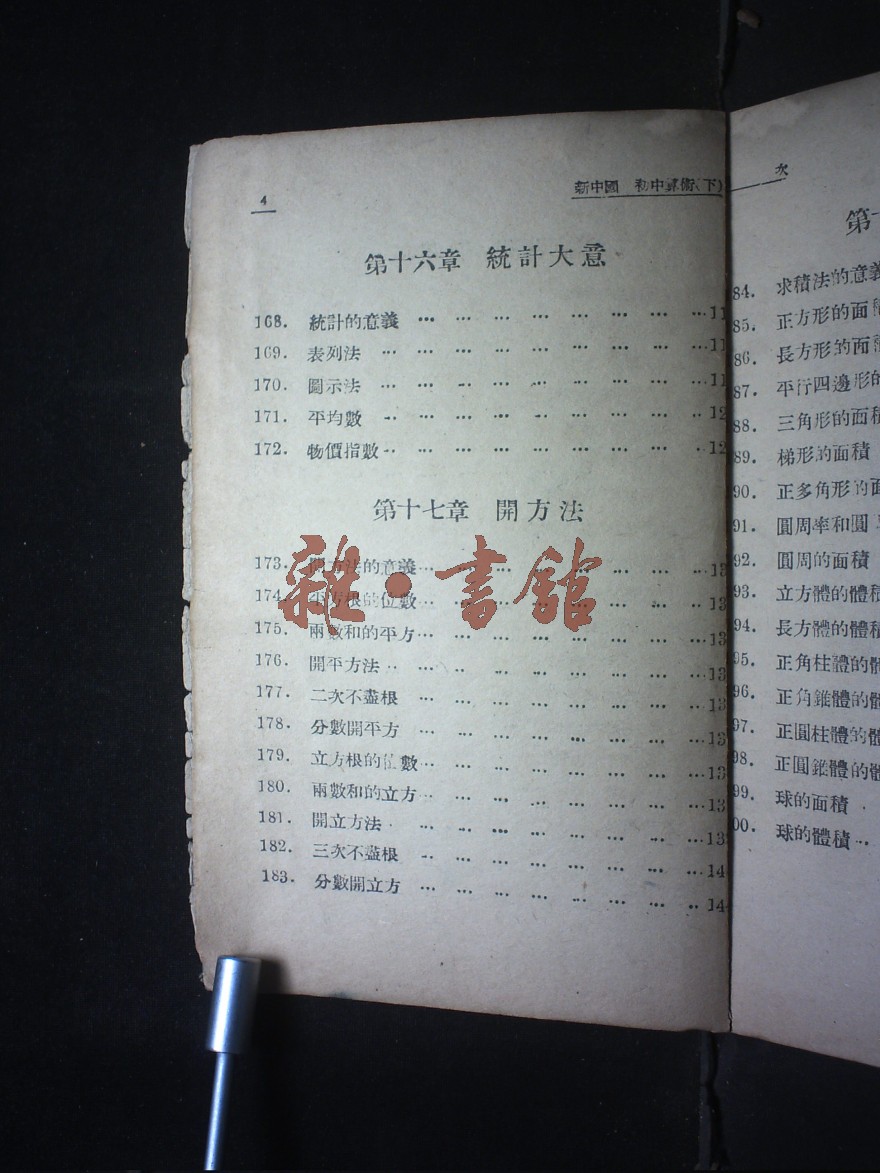 4
新中國 初中算術(下)
第十六章 統計大意
168. 統計的意義 … … … … … … … …11
169. 表列法 … … … … … … … … …11
170. 圖示法 … … … … … … … … …11
171. 平均數 … … … … … … … … …12
172. 物價指數 … … … … … … … … …12
第十七章 開方法
173. 開方法的意義 … … … … … … …13
174. 平方根的位數 … … … … … … … …13
175. 兩數和的平方 … … … … … … …13
176. 開平方法 … … … … … … … … …13
177. 二次不盡根 … … … … … … … …13
178. 分數開平方 … … … … … … … …13
179. 立方根的位數 … … … … … … … …13
180. 兩數和的立方 … … … … … … … …13
181. 開立方法 … … … … … … … … …13
182. 三次不盡根 … … … … … … … …14
183. 分數開立方 … … … … … … … …14
雜·書館
次
第
84. 求積法的意義
85. 正方形的面
86. 長方形的面
87. 平行四邊形的
88. 三角形的面積
89. 梯形的面積
90. 正多角形的面
91. 圓周率和圓
92. 圓周的面積
93. 立方體的體積
94. 長方體的體積
95. 正角柱體的體
96. 正角錐體的體
97. 正圓柱體的體
98. 正圓錐體的體
99. 球的面積
00. 球的體積 …